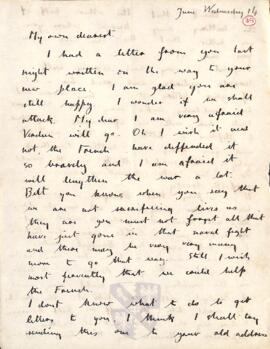 June Wednesday 14
My own dearest
I had a letter from you last
night written on the way to your
new place. I am glad you are
still happy I wonder if we shall
attack. My dear I am very afraid
Verdun will go. Oh I wish it were
not, the French have deffended it
so bravely and I am afraied it
will lengthen the war a lot.
But you know when you say that
we are not sacrificing lives as
they are you must not forget all that
have just gone in that naval fight
and there may be very very many
more to go that way. Still I wish
most fervently that we could help
the French.
I dont know what to do to get
letters to you I think I shall try
sending this one to your old address